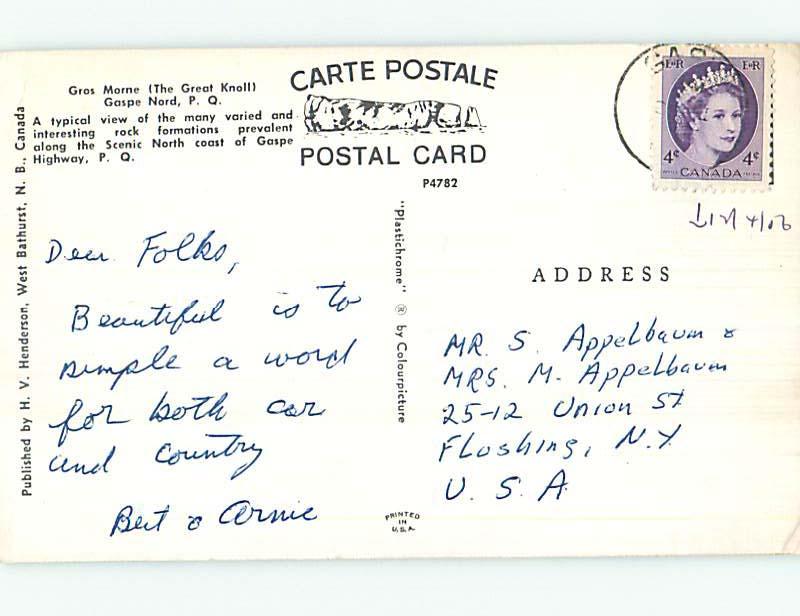 Gros Morne (The Great Knoll)
Gaspe Nord, P. Q.
A typical view of the many varied and
interesting rock formations prevalent
along the Scenic North coast of Gaspe
Highway, P. Q.
CARTE POSTALE
POSTAL CARD
P4782
Published by H. V. Henderson, West Bathurst, N. B., Canada
"Plastichrome" ® by Colourpicture
GAS
E R
E R
4¢
4¢
CANADA
Dear Folks,
Beautiful is to
simple a word
for both car
and country
Bert & Arnie
ADDRESS
MR. S. Appelbaum &
MRS. M. Appelbaum
25-12 Union St
Flushing, N.Y.
U. S. A.
PRINTED
IN
U.S.A.